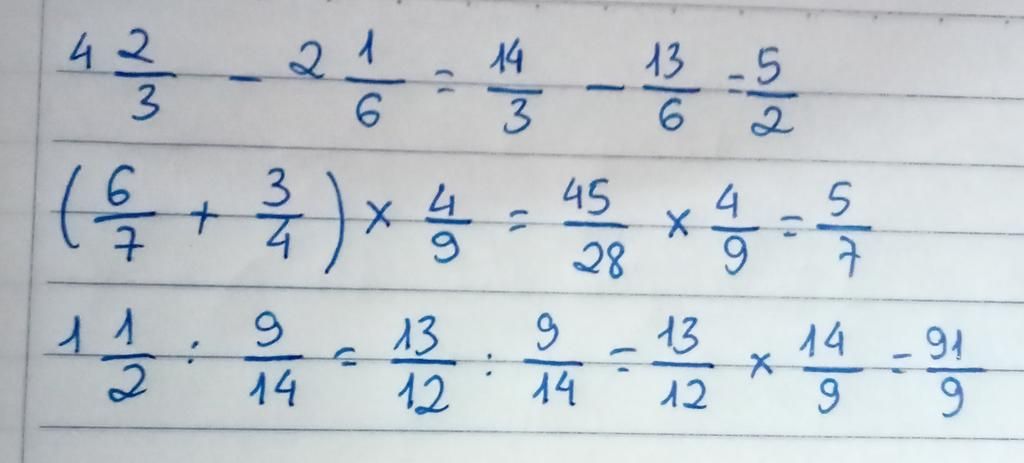 4 2/3 - 2 1/6 = 14/3 - 13/6 = 5/2
(6/7 + 3/4) × 4/9 = 45/28 × 4/9 = 5/7
1 1/2 : 9/14 = 13/12 : 9/14 = 13/12 × 14/9 = 91/9